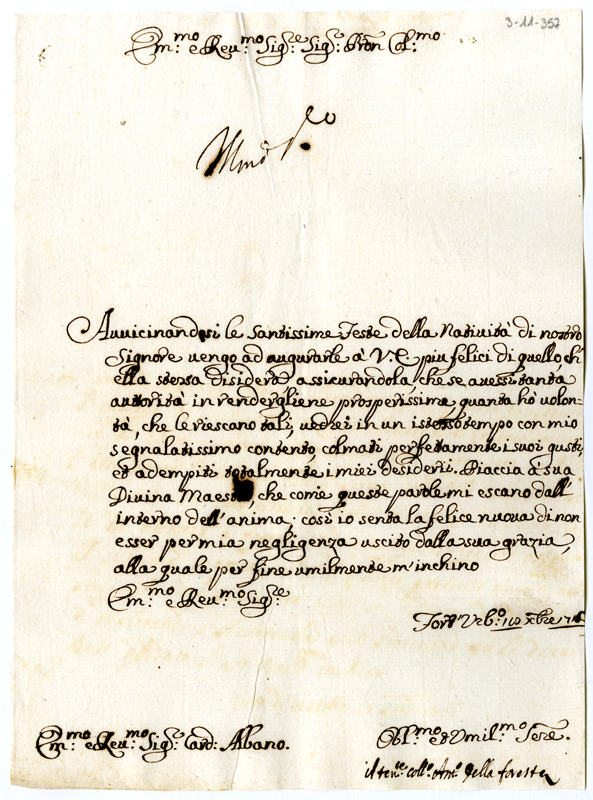 3-11-357
Em:mo e Reu:mo Sig:e Sig:e Pron Col:mo
Auuicinandosi le Santissime Feste della Natiuità di nostro
Signore uengo ad augurarle à V.E. piu felici di quello ch'
ella stessa disidera assicurandola, che se auessi tanta
autorità in rendergliene prosperissime, quanta hò uolon-
tà, che le riescano tali, uedrei in un istesso tempo con mio
segnalatissimo contento, colmati perfettamente i suoi gusti,
et adempiti totalmente i miei desiderii. Piaccia à sua
Diuina Maestà, che come queste parole mi escano dall'
interno dell'anima, così io senta la felice nuoua di non
esser per mia negligenza uscito dalla sua grazia,
alla quale per fine umilmente m'inchino
Em:mo e Reu:mo Sig:e
Forte Vrb:o xbre
Em:mo e Reu:mo Sig:e Card: Albano.
Obl:mo et Vmil:mo Sere.
il ten:te coll:o Ant:o della foresta